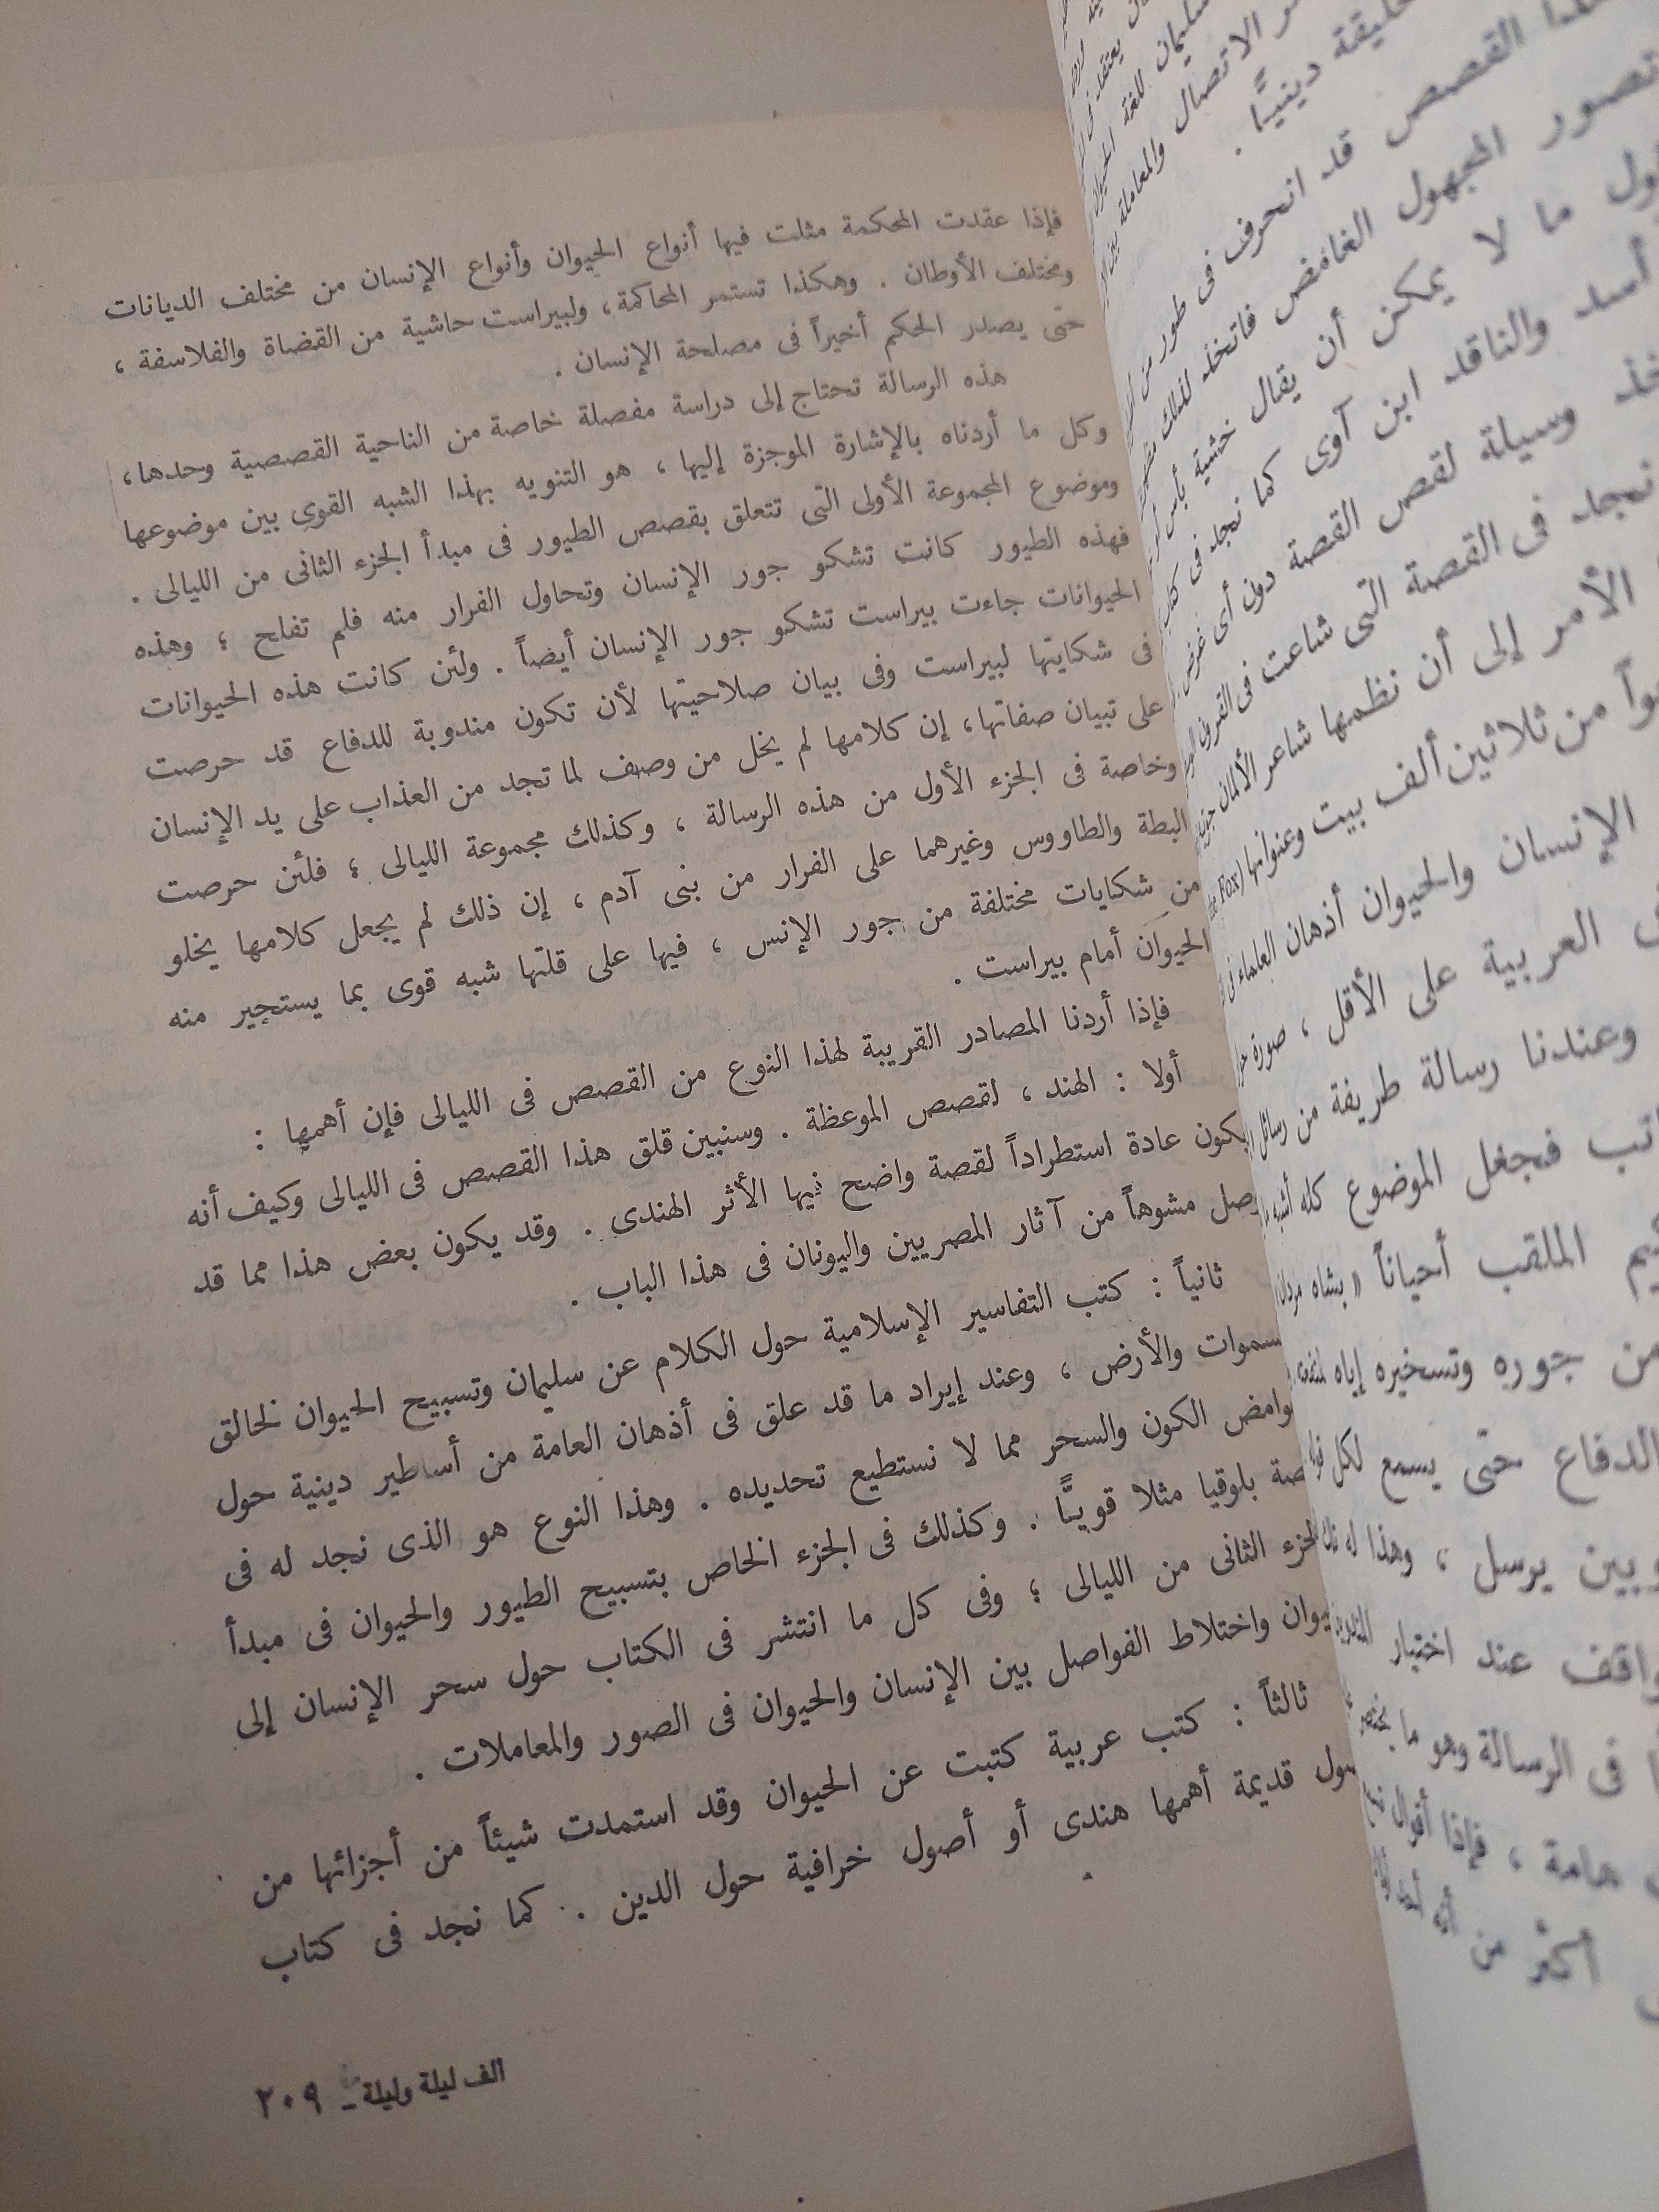 فإذا عقدت المحكمة مثلت فيها أنواع الحيوان وأنواع الإنسان من مختلف الديانات
ومختلف الأوطان . وهكذا تستمر المحاكمة، ولبيراست حاشية من القضاة والفلاسفة ،
حتى يصدر الحكم أخيراً فى مصلحة الإنسان .
هذه الرسالة تحتاج إلى دراسة مفصلة خاصة من الناحية القصصية وحدها،
وكل ما أردناه بالإشارة الموجزة إليها ، هو التنويه بهذا الشبه القوى بين موضوعها
وموضوع المجموعة الأولى التى تتعلق بقصص الطيور فى مبدأ الجزء الثانى من الليالى .
فهذه الطيور كانت تشكو جور الإنسان وتحاول الفرار منه فلم تفلح ؛ وهذه
الحيوانات جاءت بيراست تشكو جور الإنسان أيضاً . ولئن كانت هذه الحيوانات
فى شكايتها لبيراست وفى بيان صلاحيتها لأن تكون مندوبة للدفاع قد حرصت
على تبيان صفاتها، إن كلامها لم يخل من وصف لما تجد من العذاب على يد الإنسان
وخاصة فى الجزء الأول من هذه الرسالة ، وكذلك مجموعة الليالى ؛ فلئن حرصت
البطة والطاووس وغيرهما على الفرار من بنى آدم ، إن ذلك لم يجعل كلامها يخلو
من شكايات مختلفة من جور الإنس ، فيها على قلتها شبه قوى بما يستجير منه
الحيوان أمام بيراست .
فإذا أردنا المصادر القريبة لهذا النوع من القصص فى الليالى فإن أهمها :
أولا : الهند ، لقصص الموعظة . وسنبين قلق هذا القصص فى الليالى وكيف أنه
يكون عادة استطراداً لقصة واضح فيها الأثر الهندى . وقد يكون بعض هذا مما قد
وصل مشوهاً من آثار المصريين واليونان فى هذا الباب .
ثانياً : كتب التفاسير الإسلامية حول الكلام عن سليمان وتسبيح الحيوان لخالق
سموات والأرض ، وعند إيراد ما قد علق فى أذهان العامة من أساطير دينية حول
وامض الكون والسحر مما لا نستطيع تحديده . وهذا النوع هو الذى نجد له فى
صة بلوقيا مثلا قويًّا . وكذلك فى الجزء الخاص بتسبيح الطيور والحيوان فى مبدأ
لجزء الثانى من الليالى ؛ وفى كل ما انتشر فى الكتاب حول سحر الإنسان إلى
يوان واختلاط الفواصل بين الإنسان والحيوان فى الصور والمعاملات .
ثالثاً : كتب عربية كتبت عن الحيوان وقد استمدت شيئاً من أجزائها من
صول قديمة أهمها هندى أو أصول خرافية حول الدين . كما نجد فى كتاب
الف ليلة وليلة - ٢٠٩
سليمان للغة الحيوان
الاتصال والمعاملة بين
دينيًّا .
القصص قد انحرف فى طور من
تصور المجهول الغامض فاتخذ لذلك
ما لا يمكن أن يقال خشية بأس
أسد والناقد ابن آوى كما نجد فى كتاب
وسيلة لقص القصة دون أى غرض
نجد فى القصة التى شاعت فى القرون
الأمر إلى أن نظمها شاعر الألمان
من ثلاثين ألف بيت وعنوانها (Fox
الإنسان والحيوان أذهان العلماء فى
العربية على الأقل ، صورة
وعندنا رسالة طريفة من رسائل
فجعل الموضوع كله أشبه
الملقب أحياناً « بشاه مردان
من جوره وتسخيره إياه
الدفاع حتى يسمع لكل
وبين يرسل ، وهذا له
عند اختيار
فى الرسالة وهو ما يختص
هامة ، فإذا أقوال
أكثر من أنه أحد